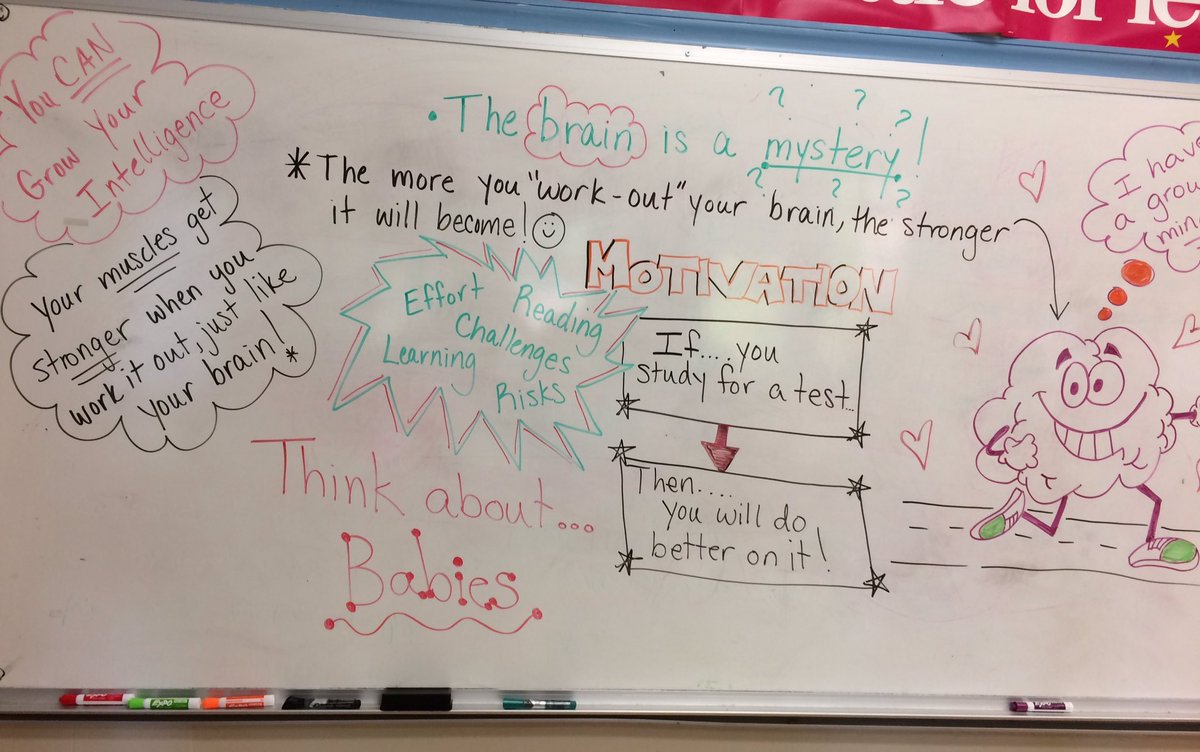 You CAN
Grow Your
Intelligence
Your muscles get
stronger when you
work it out, just like
your brain! *
• The brain is a mystery!
? ? ?
? ? ?
* The more you "work-out" your brain, the stronger
it will become!
Effort Reading
Challenges
Learning
Risks
MOTIVATION
If....you
study for a test...
Then....
you will do
better on it!
Think about...
Babies
I have
a grow
min
for le